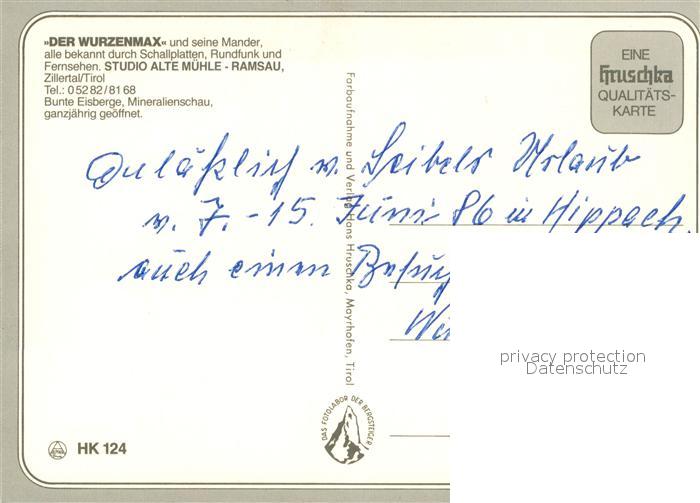 »DER WURZENMAX« und seine Mander,
alle bekannt durch Schallplatten, Rundfunk und
Fernsehen. STUDIO ALTE MÜHLE - RAMSAU,
Zillertal/Tirol
Tel.: 0 52 82 / 81 68
Bunte Eisberge, Mineralienschau,
ganzjährig geöffnet.
EINE
Hruschka
QUALITÄTS-
KARTE
Farbaufnahme und Verlag Hans Hruschka, Mayrhofen, Tirol
Anläßlich v. Seibels Urlaub
v. 7. - 15. Juni 86 in Hippach.
auch einen Besuch
privacy protection
Datenschutz
DAS FOTOLABOR DER BERGSTEIGER
HK 124